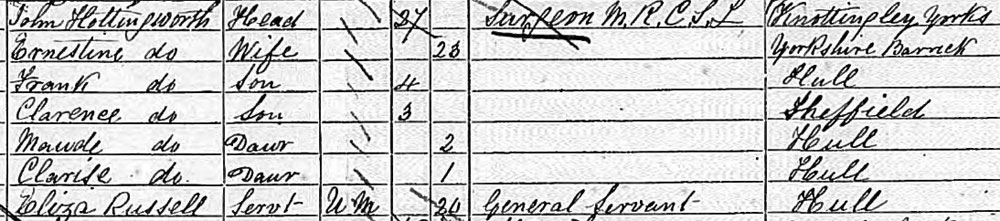 John Hollingworth Head 27 Surgeon M.R.C.S.L Knottingley Yorks
Ernestine do Wife 23 Yorkshire
Frank do Son 4 Hull
Clarence do Son 3 Sheffield
Mawde do Daur 2 Hull
Clarise do. Daur 1 Hull
Eliza Russell Servt U M 20 General Servant Hull